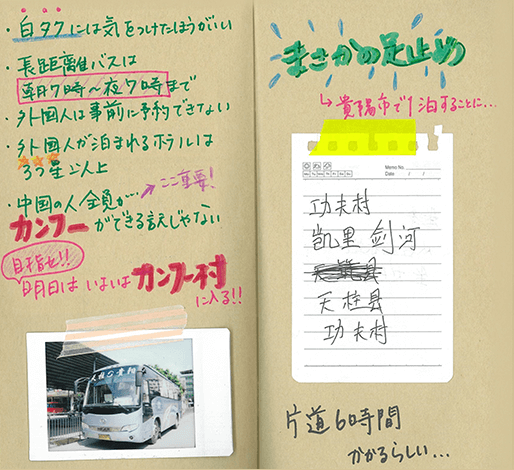 ・白タクには気をつけたほうがいい
・長距離バスは
朝7時〜夜7時まで
・外国人は事前に予約できない
・外国人が泊まれるホテルは
3つ星以上
・中国の人全員が…
ここ重要!
カンフーができる訳じゃない
目指せ!!
明日はいよいよカンフー村
に入る!!
まさかの足止め
貴陽市で1泊することに…
Memo No.
Mo Tu We Th Fr Sa Su
Date / /
功夫村
凯里 剑河
天柱县
功夫村
片道6時間
かかるらしい…